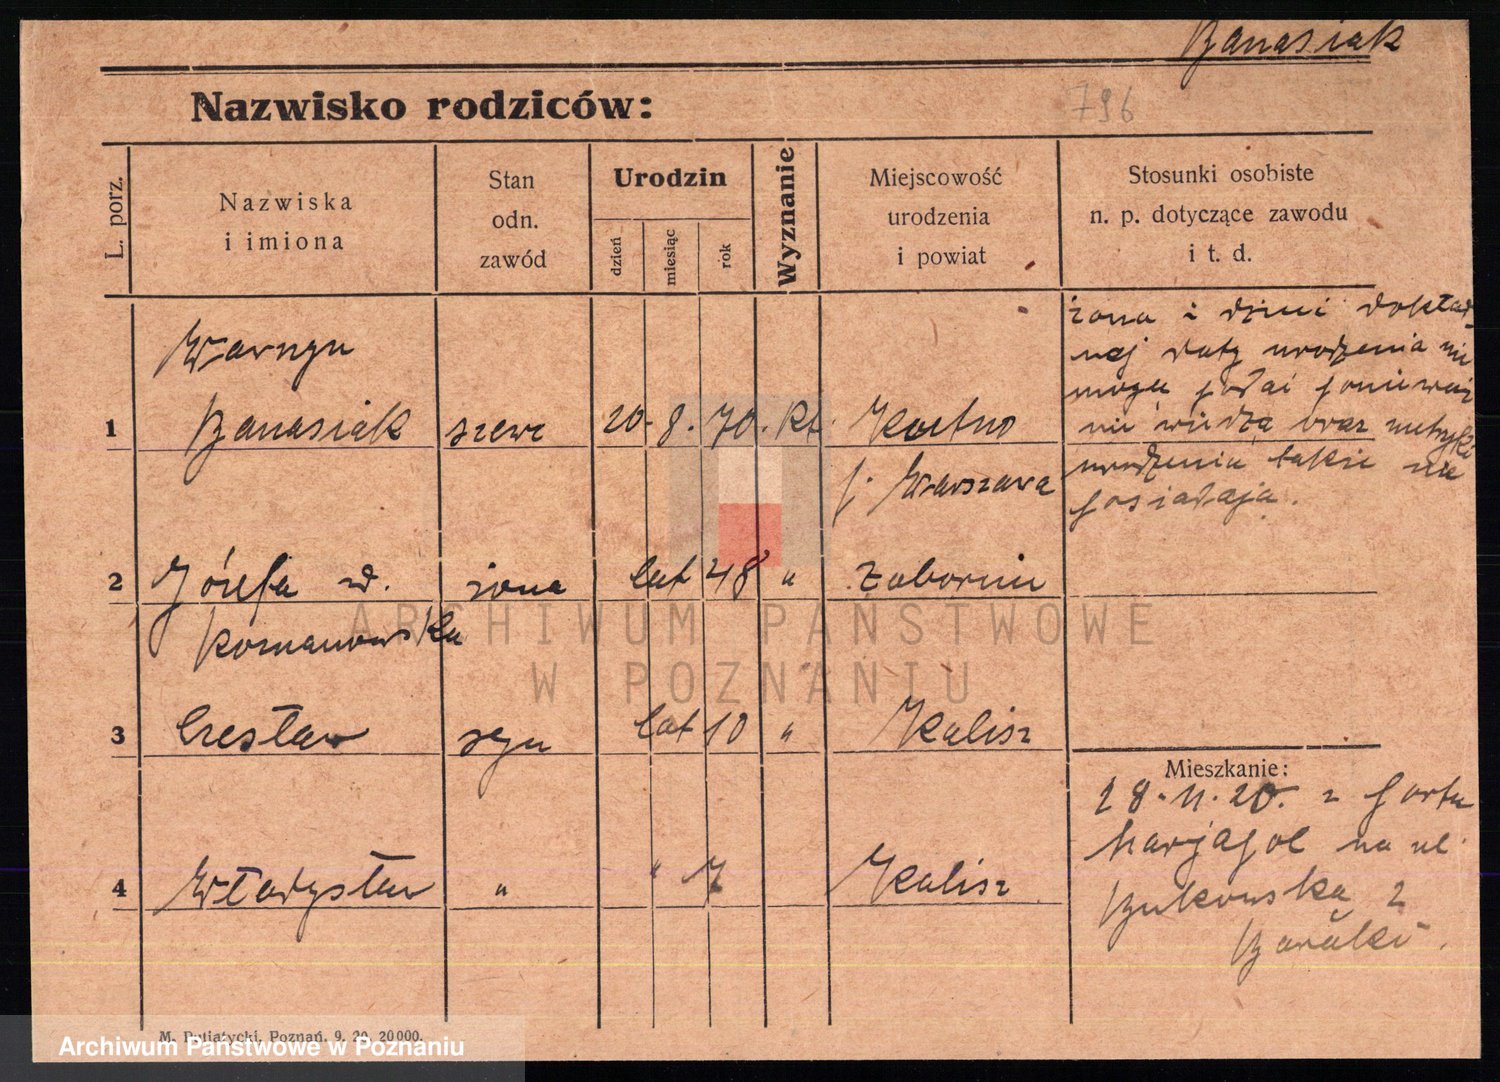 Banasiak
Nazwisko rodziców:
796
L. porz.
Nazwiska
i imiona
Stan
odn.
zawód
Urodzin
dzień
miesiąc
rok
Wyznanie
Miejscowość
urodzenia
i powiat
Stosunki osobiste
n. p. dotyczące zawodu
i t. d.
1
Banasiak szewc 20. 8. 70. kt.
p. Warszawa
żona i dzieci dokład
nej daty urodzenia nie
mogą podać ponieważ
nie wiedzą oraz metryki
urodzenia także nie
posiadają.
2 Józefa żona lat 48 "
3 Czesław syn lat 10 " Kalisz
4 Władysław " " 7 Kalisz
Mieszkanie:
28.11.20. z fortu
na ul.
Bukowska 2
Baraki.
ARCHIWUM PAŃSTWOWE
W POZNANIU
M. Putiatycki, Poznań. 9. 20. 20000.
Archiwum Państwowe w Poznaniu